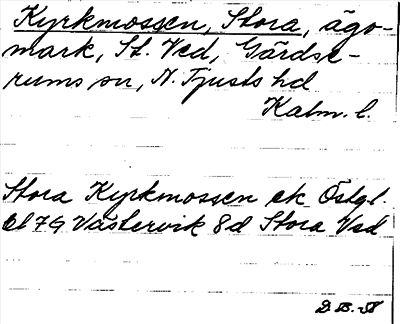 Kyrkmossen, Stora, ägo-
mark, St. Ved, Gärdse-
rums sn, N. Tjusts hd
Kalm. l.
Stora Kyrkmossen ek Östgl.
bl 7G Västervik 8d Stora Ved